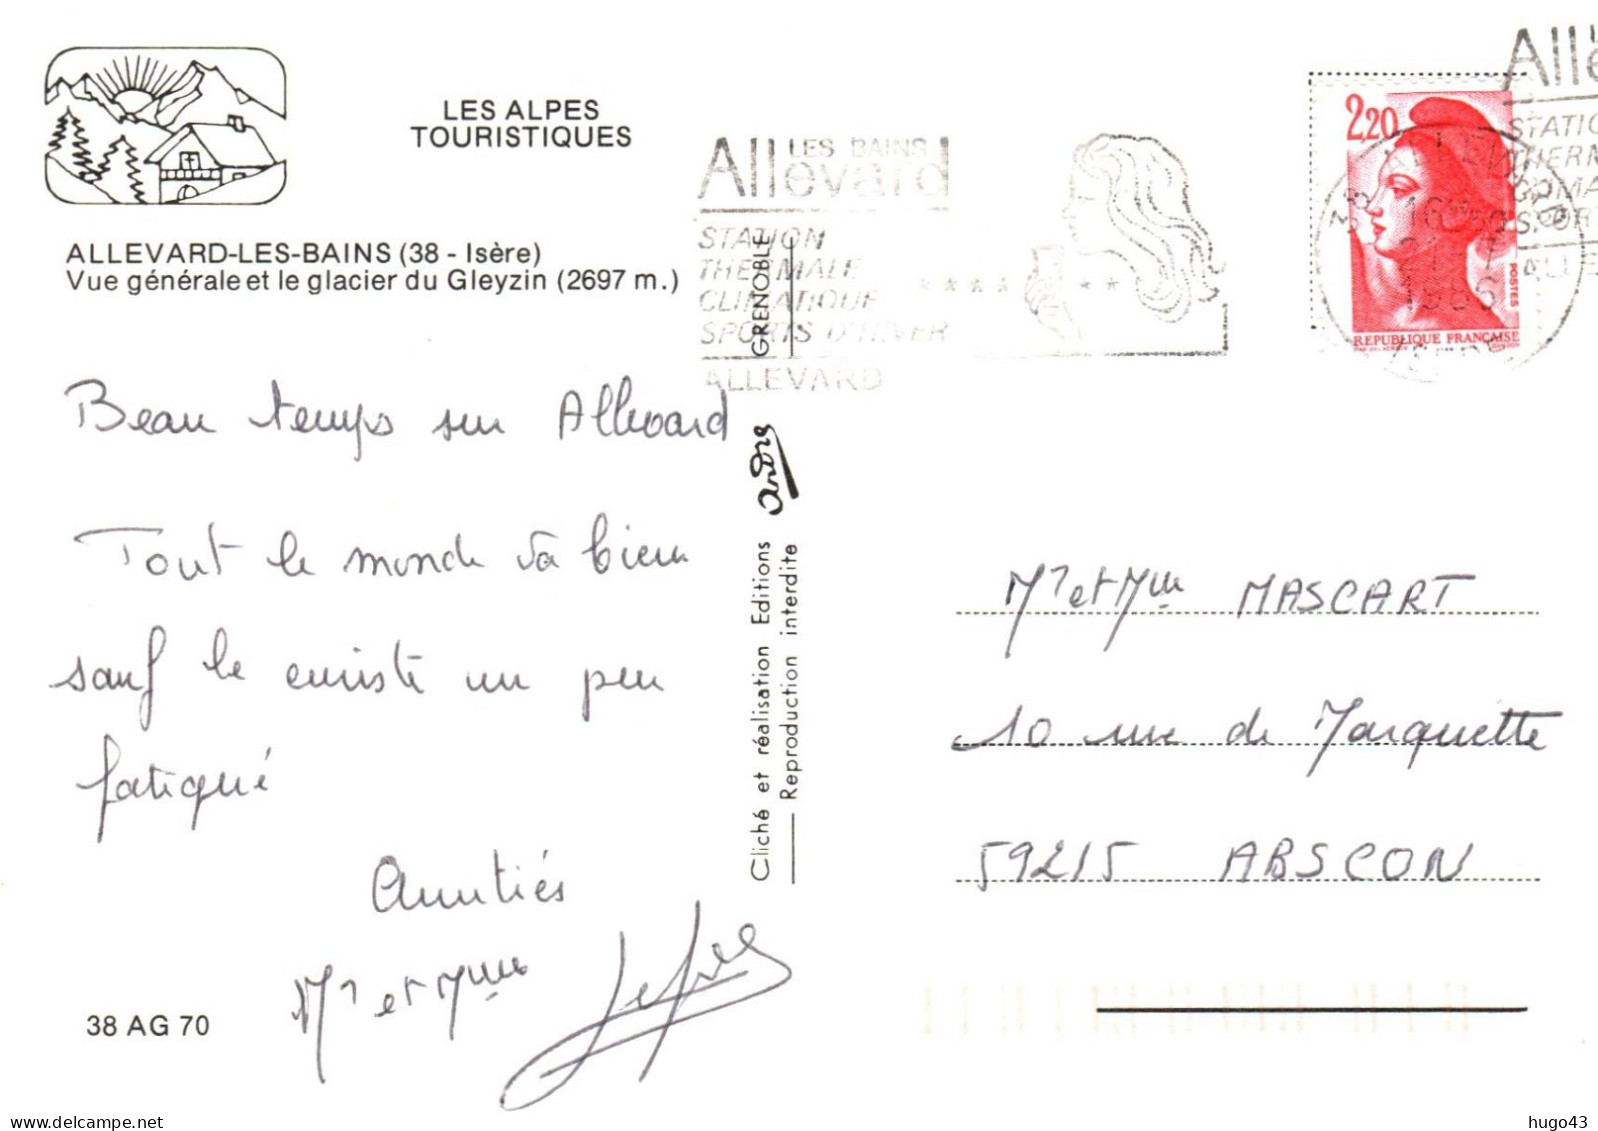 LES ALPES
TOURISTIQUES
ALLEVARD-LES-BAINS (38 - Isère)
Vue générale et le glacier du Gleyzin (2697 m.)
Beau temps sur Allevard
Tout le monde va bien
sauf le curiste un peu
fatigué
Amitiés
Mr et Mme
38 AG 70
GRENOBLE
André
Cliché et réalisation Editions
Reproduction interdite
LES BAINS
Allevard
STATION
THERMALE
CLIMATIQUE
SPORTS D'HIVER
ALLEVARD
2,20
POSTES
REPUBLIQUE FRANÇAISE
LES
Alle
STATIO
THERM
LIMA
SPOR
ALLE
38
1986
Mr et Mme MASCART
10 rue de Marquette
59215 ABSCON
delcampe.net
hugo43